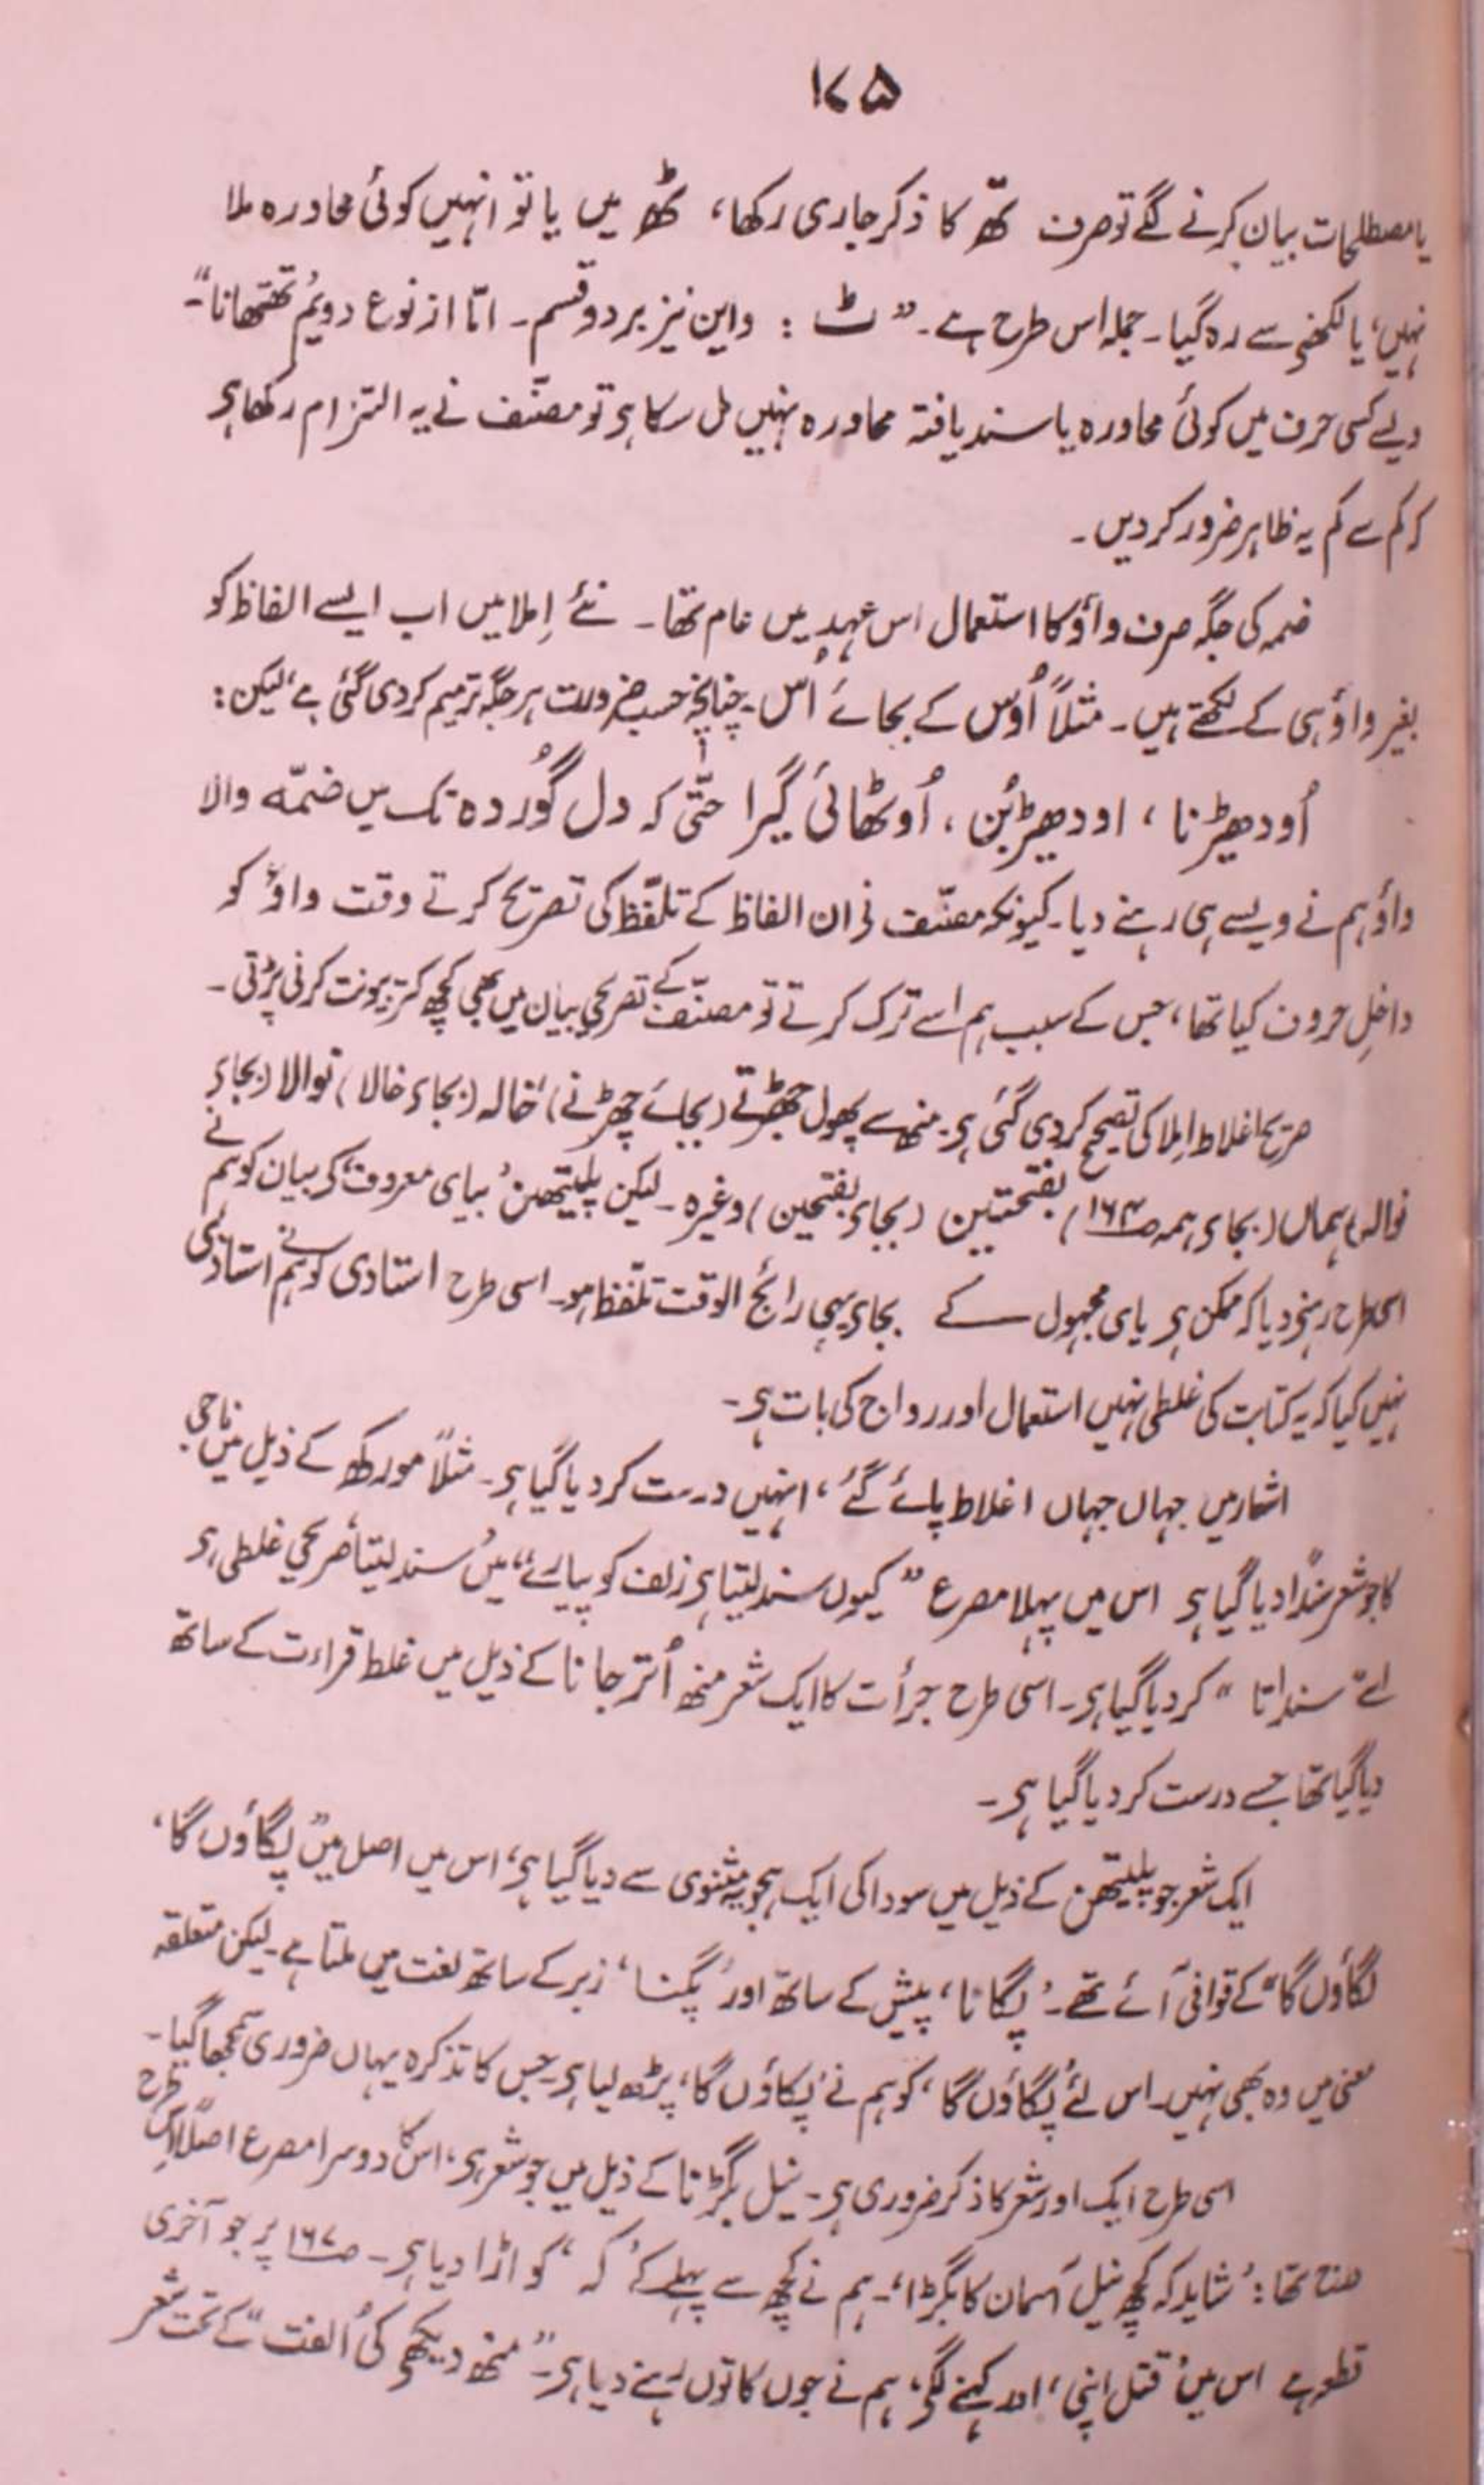 ۱۷۵
یا مصطلحات بیان کرنے لگے تو صرف تھّ کا ذکر جاری رکھا، ٹھ میں یا تو انہیں کوئی محاورہ ملا
نہیں، یا لکھنے سے رہ گیا۔ جملہ اس طرح ہے۔ ”ٹ : واین نیز بر دو قسم۔ امّا از نوع دویُم تھتھانا“۔
ویسے کسی حرف میں کوئی محاورہ یا سند یافتہ محاورہ نہیں مل سکا ہی تو مصنّف نے یہ التزام رکھا ہی
کہ کم سے کم یہ ظاہر ضرور کر دیں۔
ضمہ کی جگہ صرف واؤ کا استعمال اس عہد میں عام تھا۔ نئے اِملا میں اب ایسے الفاظ کو
بغیر واؤ ہی کے لکھتے ہیں۔ مثلاً اُوس کے بجائے اُس۔ چنانچہ حسب ضرورت ہر جگہ ترمیم کر دی گئی ہے، لیکن :
اُودھیڑنا ، اودھیڑبُن ، اُوٹھائی گیرا حتّیٰ کہ دل گُوردہ تک میں ضمّہ والا
واؤ ہم نے ویسے ہی رہنے دیا۔ کیونکہ مصنّف نے ان الفاظ کے تلفّظ کی تصریح کرتے وقت واؤ کو
داخلِ حروف کیا تھا، جس کے سبب ہم اسے ترک کرتے تو مصنّف کے تصریحی بیان میں بھی کچھ کتر بیونت کرنی پڑتی۔
صریح اغلاط اِملا کی تصحیح کر دی گئی ہی۔ منھ سے پھول جھڑتے (بجائے چھڑنے)، خالہ (بجاے خالا) نوالا (بجاے
نوالہ) ہماں (بجاے ہمہ صـ۱۶۴) بفتحتین (بجاے بفتحین) وغیرہ۔ لیکن پلیتھن ’بیای معروف‘ کے بیان کو ہم نے
اسی طرح رہنے دیا کہ ممکن ہی یای مجہول کے بجاے یہی رائج الوقت تلفّظ ہو۔ اسی طرح استادی کو ہم نے استادگی
نہیں کیا کہ یہ کتابت کی غلطی نہیں استعمال اور رواج کی بات ہی۔
اشعار میں جہاں جہاں اغلاط پائے گئے، انہیں درست کر دیا گیا ہی۔ مثلاً مورکھ کے ذیل میں ناجی
کا جو شعر سنداً دیا گیا ہی اس میں پہلا مصرع ”کیوں سند لیتا ہی زلف کو پیارے“ میں ’سند لیتا‘ صریحی غلطی ہی
اسے ”سنداتا“ کر دیا گیا ہی۔ اسی طرح جرأت کا ایک شعر منھ اُتر جانا کے ذیل میں غلط قراءت کے ساتھ
دیا گیا تھا جسے درست کر دیا گیا ہی۔
ایک شعر جو پلیتھن کے ذیل میں سودا کی ایک ہجویہ مثنوی سے دیا گیا ہی، اس میں اصل میں ”پگاؤں گا،
لگاؤں گا“ کے قوافی آئے تھے۔ ’پگانا‘ پیش کے ساتھ اور ’پگنا‘ زبر کے ساتھ لغت میں ملتا ہے۔ لیکن متعلقہ
معنی میں وہ بھی نہیں۔ اس لئے پگاؤں گا، کو ہم نے ’پکاؤں گا‘ پڑھ لیا ہی۔ جس کا تذکرہ یہاں ضروری سمجھا گیا۔
اسی طرح ایک اور شعر کا ذکر ضروری ہی۔ نیل بگڑنا کے ذیل میں جو شعر ہی، اس کا دوسرا مصرع اصلاً اس طرح
تھا : ’شاید کہ کچھ نیل آسمان کا بگڑا‘۔ ہم نے کچھ سے پہلے کے ’کہ‘ کو اڑا دیا ہی۔ صـ۱۶۷ پر جو آخری
قطعہ ہے اس میں ’قتل اپنی‘ اور کہنے لگی، ہم نے جوں کا توں رہنے دیا ہی۔ ”منھ دیکھے کی اُلفت“ کے تحت شعر